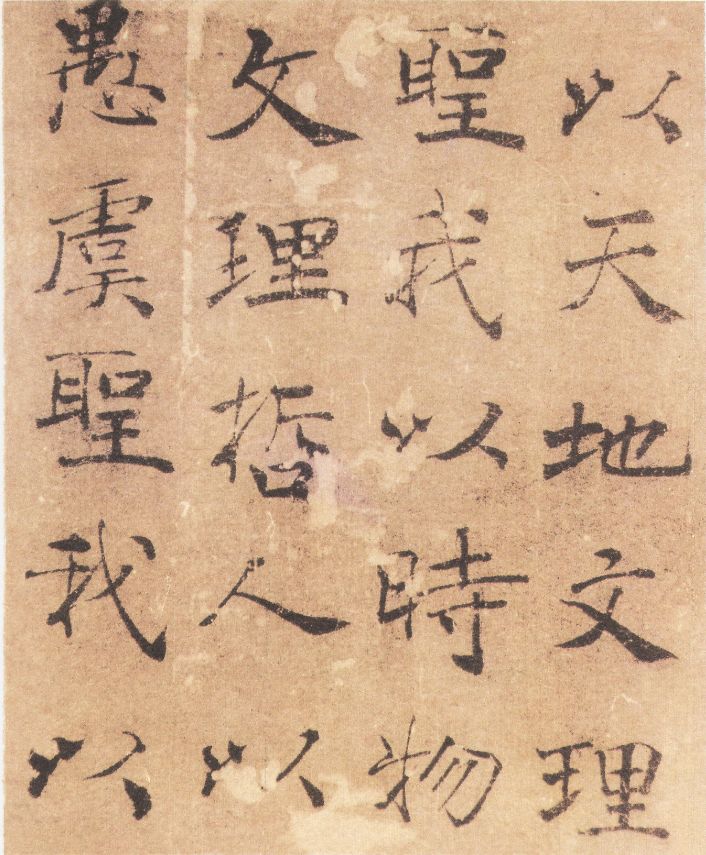 以天地文理
聖我以時物
文理哲人以
愚虞聖我以